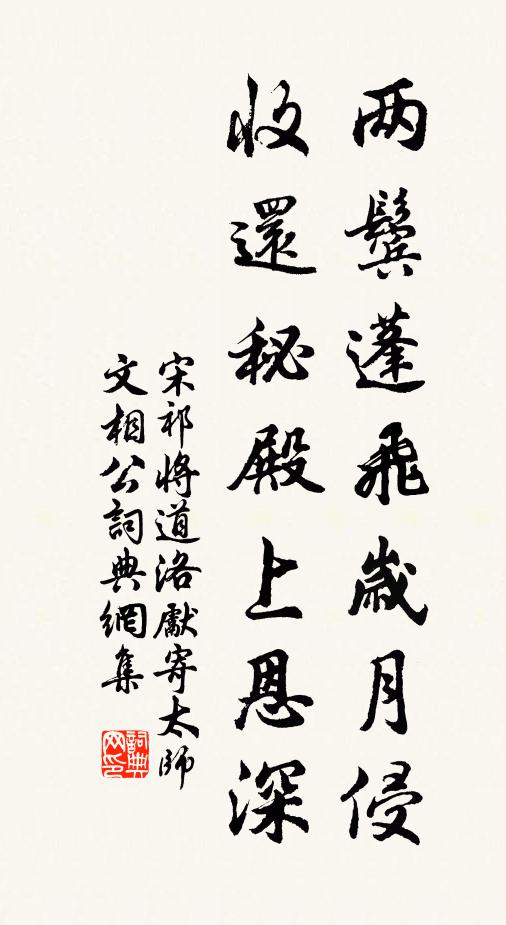 两鬢蓬飛歲月侵
收還秘殿上恩深
宋祁將道洛獻寄太師
文相公詞典網集
詞典
网印